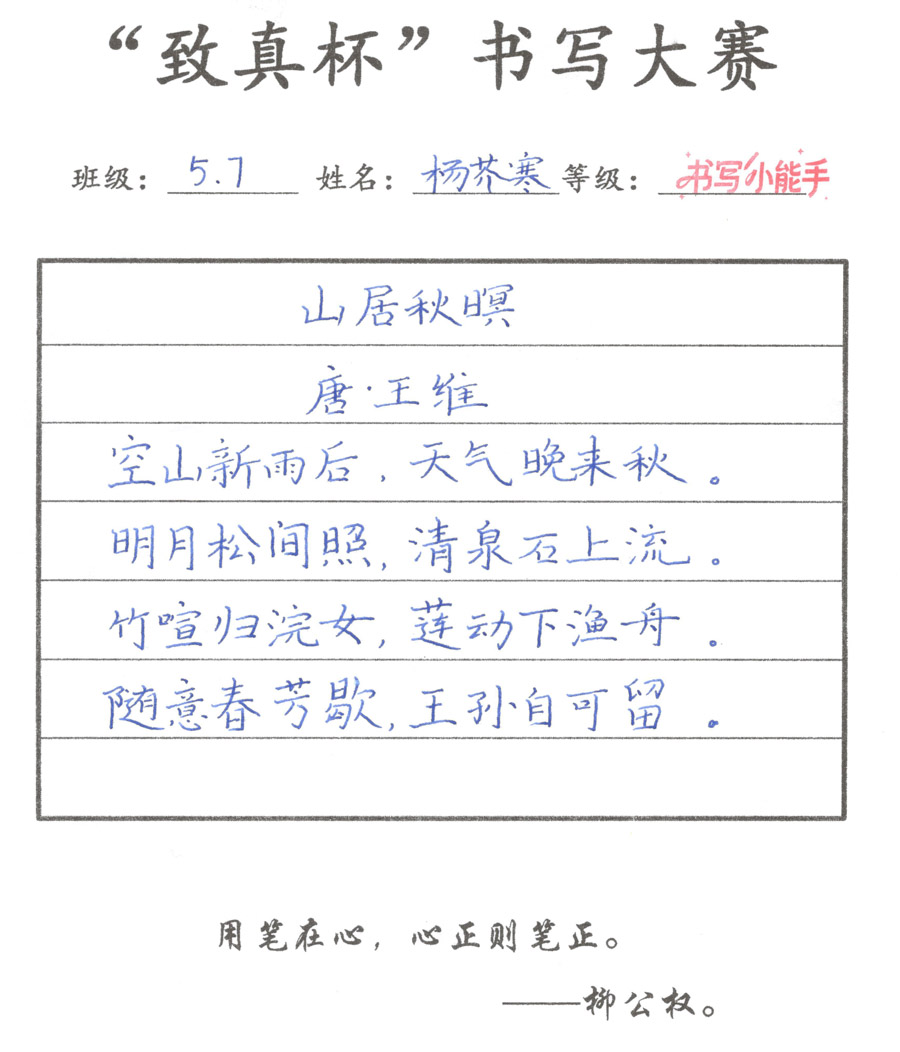 “致真杯”书写大赛
班级：5.7 姓名：杨芥寒 等级：书写小能手
山居秋暝
唐·王维
空山新雨后，天气晚来秋。
明月松间照，清泉石上流。
竹喧归浣女，莲动下渔舟。
随意春芳歇，王孙自可留。
用笔在心，心正则笔正。
——柳公权。